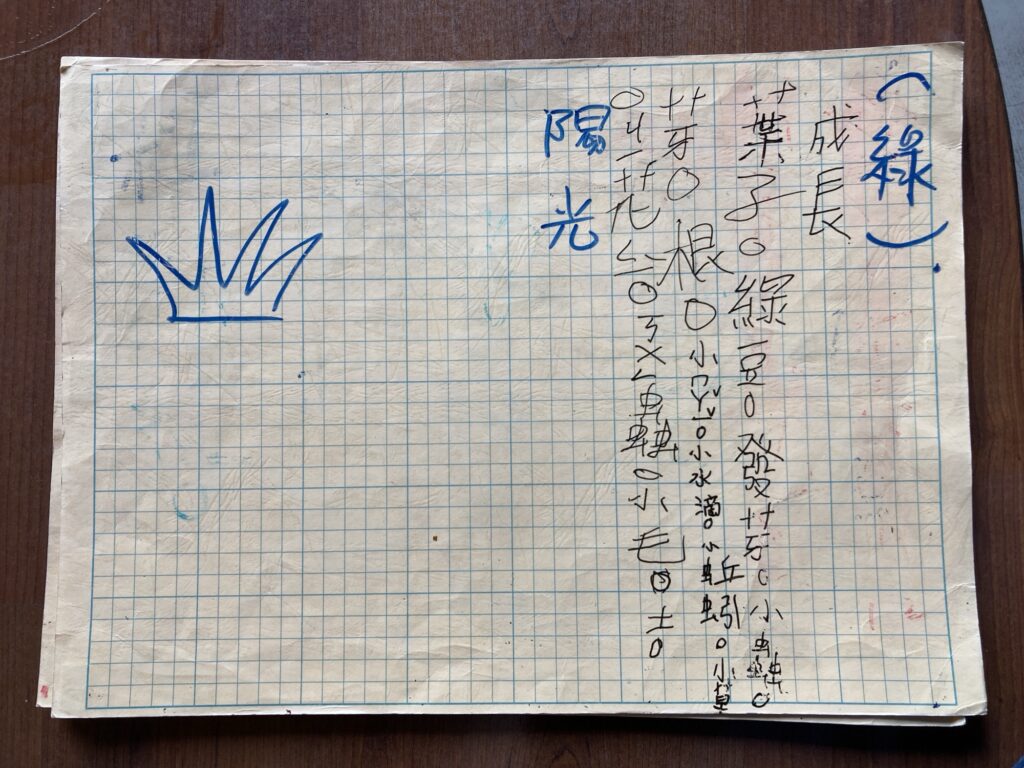 （綠）
成長
葉子。綠豆。發芽。小蟲。
芽。根。小ㄇㄚˇㄧˇ。小水滴。小蚯蚓。小草
。花。ㄎㄨㄥ蟲。小毛。土。
陽光